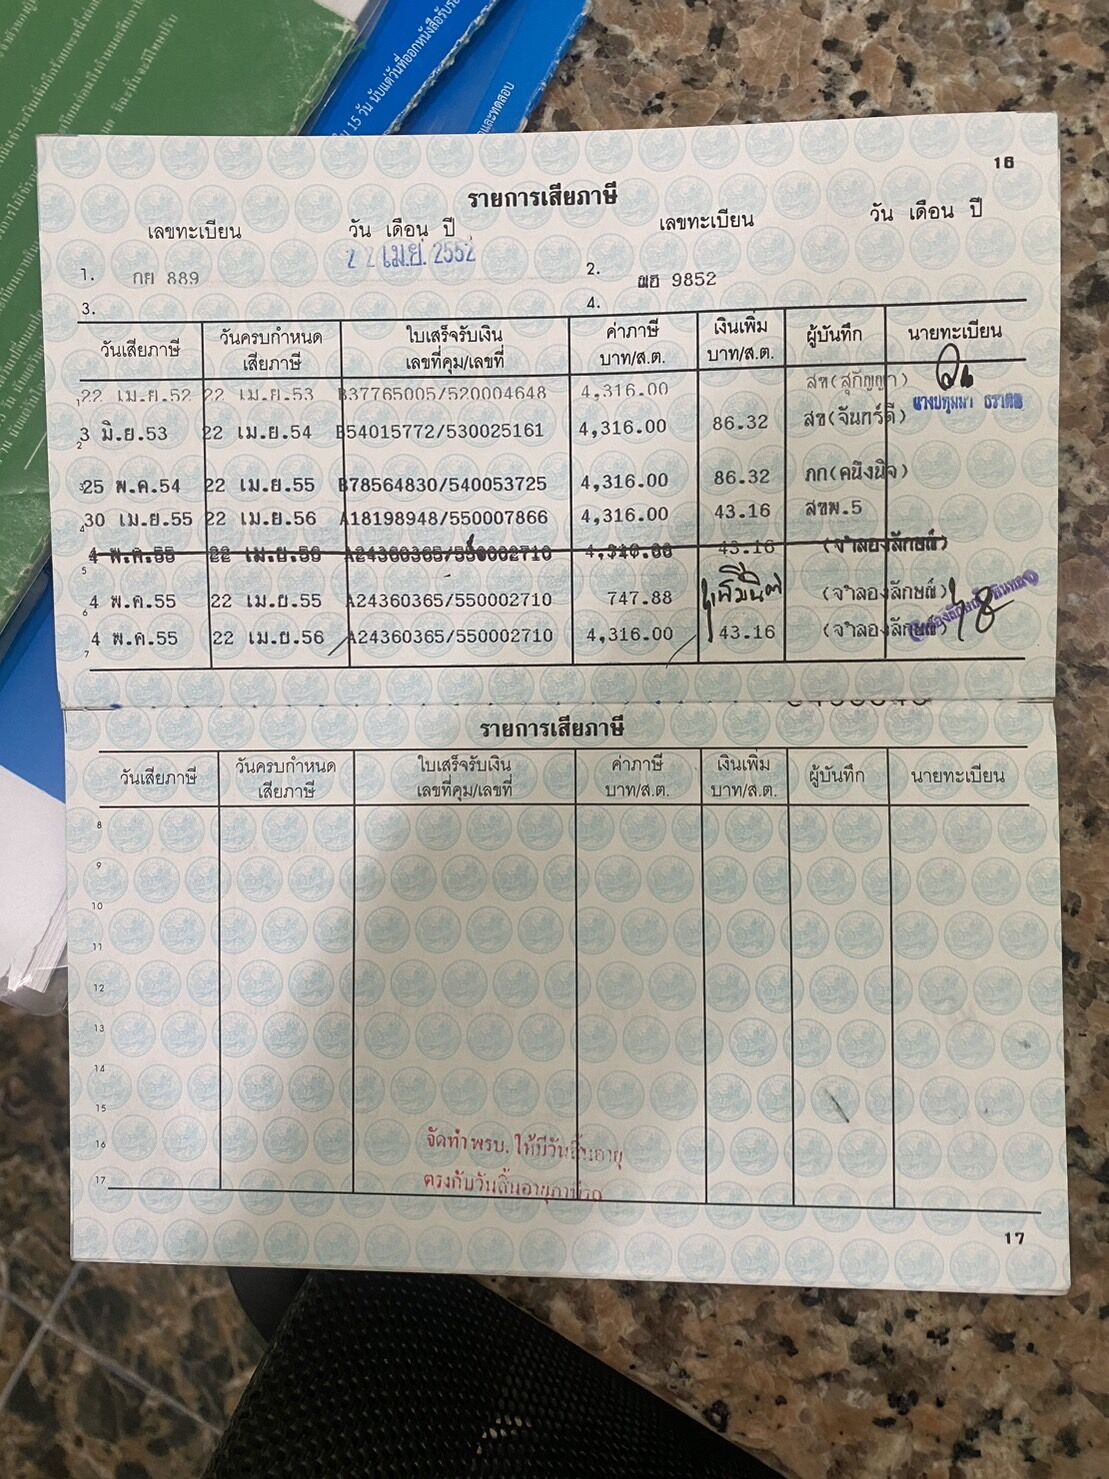 16
รายการเสียภาษี
เลขทะเบียน วัน เดือน ปี เลขทะเบียน วัน เดือน ปี
22 เม.ย. 2552
1. กย 889 2. 9852
3. 4.
วันเสียภาษี วันครบกำหนดเสียภาษี ใบเสร็จรับเงิน เลขที่คุม/เลขที่ ค่าภาษี บาท/ส.ต. เงินเพิ่ม บาท/ส.ต. ผู้บันทึก นายทะเบียน
1 22 เม.ย.52 22 เม.ย.53 B37765005/520004648 4,316.00 สข(สุกัญญา)
นางปทุมมา
2 3 มิ.ย.53 22 เม.ย.54 B54015772/530025161 4,316.00 86.32 สข(จันทร์ดี)
3 25 พ.ค.54 22 เม.ย.55 B78564830/540053725 4,316.00 86.32 ภก(คนึงนิจ)
4 30 เม.ย.55 22 เม.ย.56 A18198948/550007866 4,316.00 43.16 สขพ.5
5 4 พ.ค.55 22 เม.ย.56 A24360365/550002710 4,316.00 43.16 (จำลองลักษณ์)
6 4 พ.ค.55 22 เม.ย.55 A24360365/550002710 747.88 (จำลองลักษณ์)
7 4 พ.ค.55 22 เม.ย.56 A24360365/550002710 4,316.00 43.16 (จำลองลักษณ์)
รายการเสียภาษี
วันเสียภาษี วันครบกำหนดเสียภาษี ใบเสร็จรับเงิน เลขที่คุม/เลขที่ ค่าภาษี บาท/ส.ต. เงินเพิ่ม บาท/ส.ต. ผู้บันทึก นายทะเบียน
8
9
10
11
12
13
14
15
16
17
จัดทำ พรบ. ให้มีวันสิ้นอายุ
ตรงกับวันสิ้นอายุภาษีรถ
17